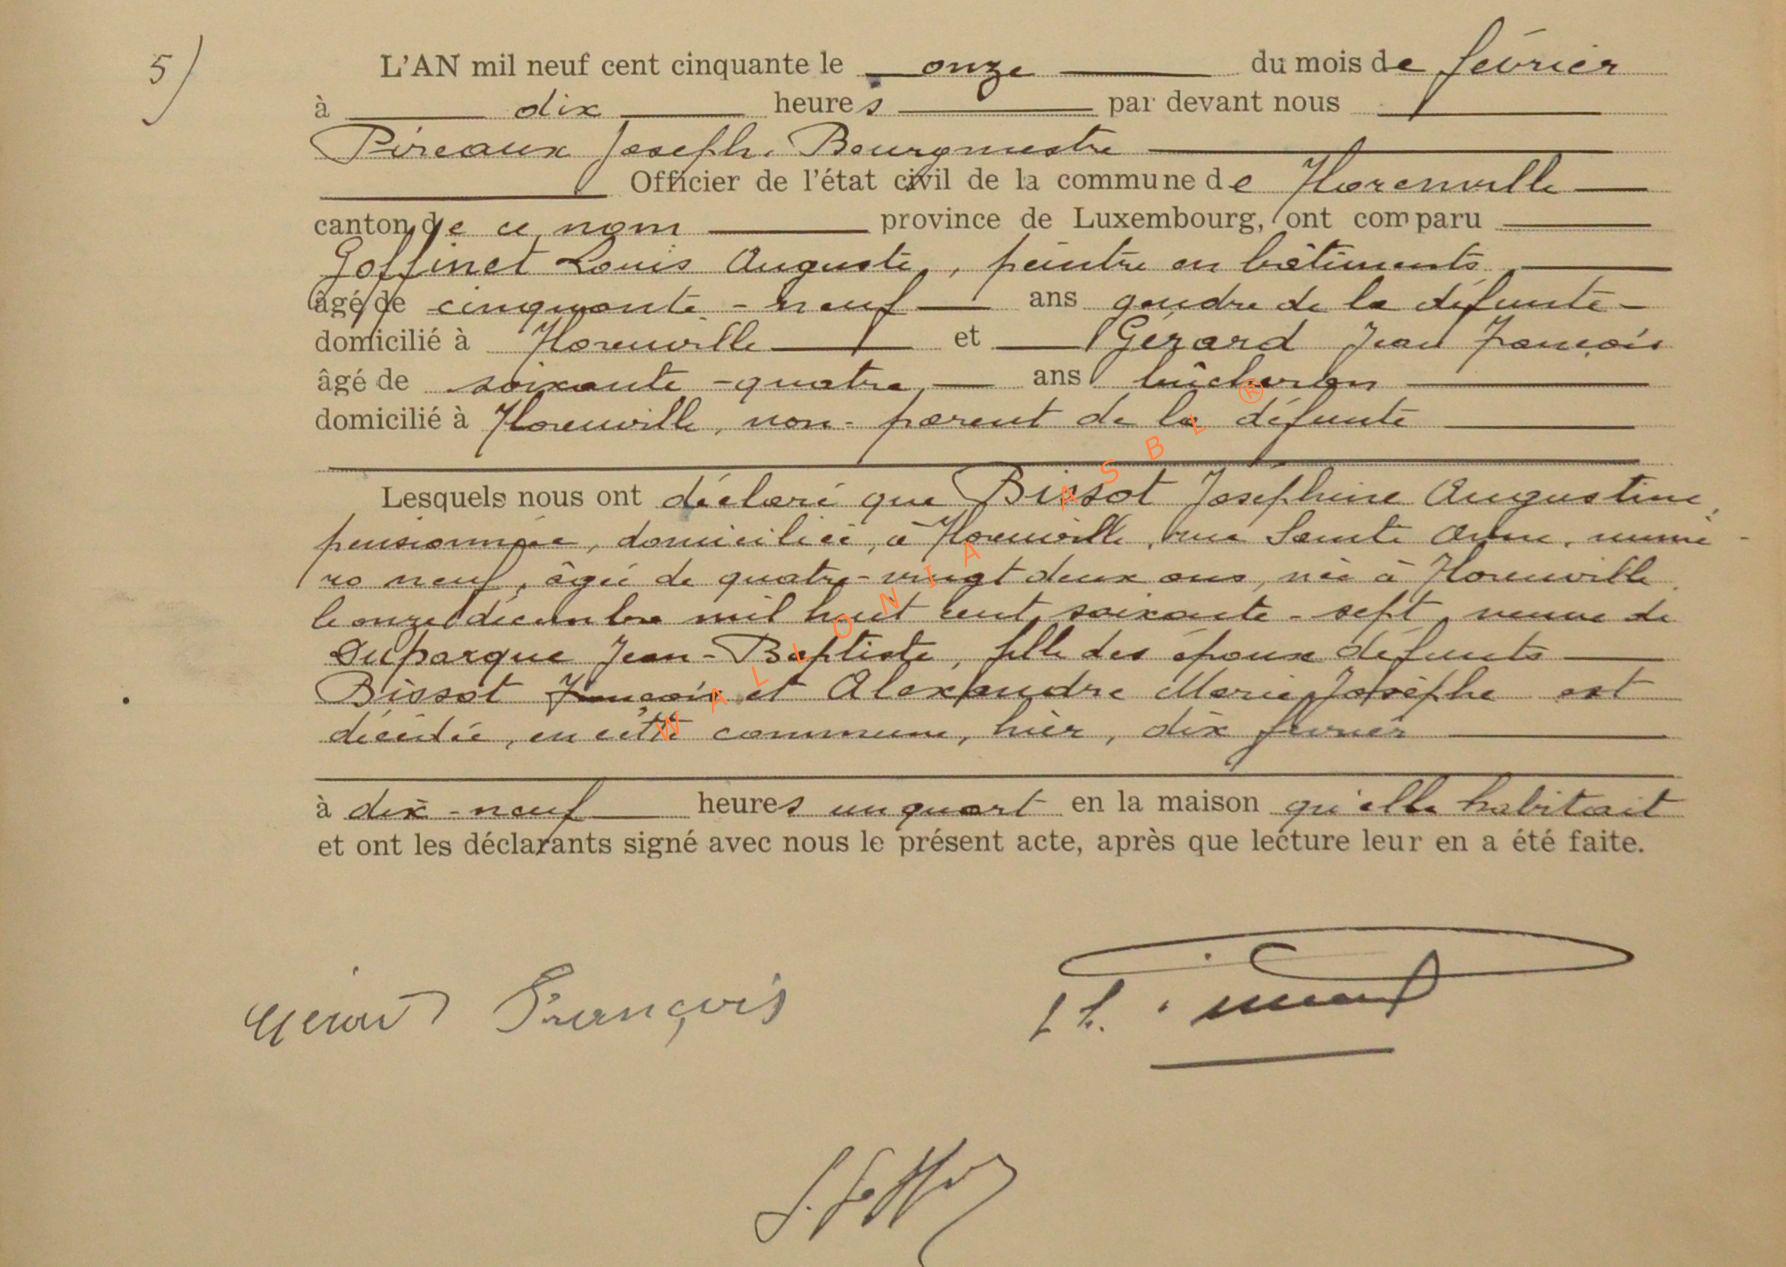 5)
L'AN mil neuf cent cinquante le onze du mois de février
à dix heures par devant nous
Pireaux Joseph. Bourgmestre
Officier de l'état civil de la commune de Florenville
canton de ce nom province de Luxembourg, ont comparu
Goffinet Louis Auguste, peintre en bâtiments
âgé de cinquante-neuf ans gendre de la défunte
domicilié à Florenville et Gérard Jean François
âgé de soixante-quatre ans bûcheron
domicilié à Florenville, non-parent de la défunte
Lesquels nous ont déclaré que Bissot Joséphine Augustine,
pensionnée, domiciliée, à Florenville, rue Sainte Anne, numé-
ro neuf, âgée de quatre-vingt deux ans, née à Florenville
le onze décembre mil huit cent soixante-sept, veuve de
Duparque Jean-Baptiste, fille des époux défunts
Bissot François et Alexandre Marie-Josèphe est
décédée, en cette commune, hier, dix février
à dix-neuf heures un quart en la maison qu'elle habitait
et ont les déclarants signé avec nous le présent acte, après que lecture leur en a été faite.
Gérard François
WALLONIA ASBL ®